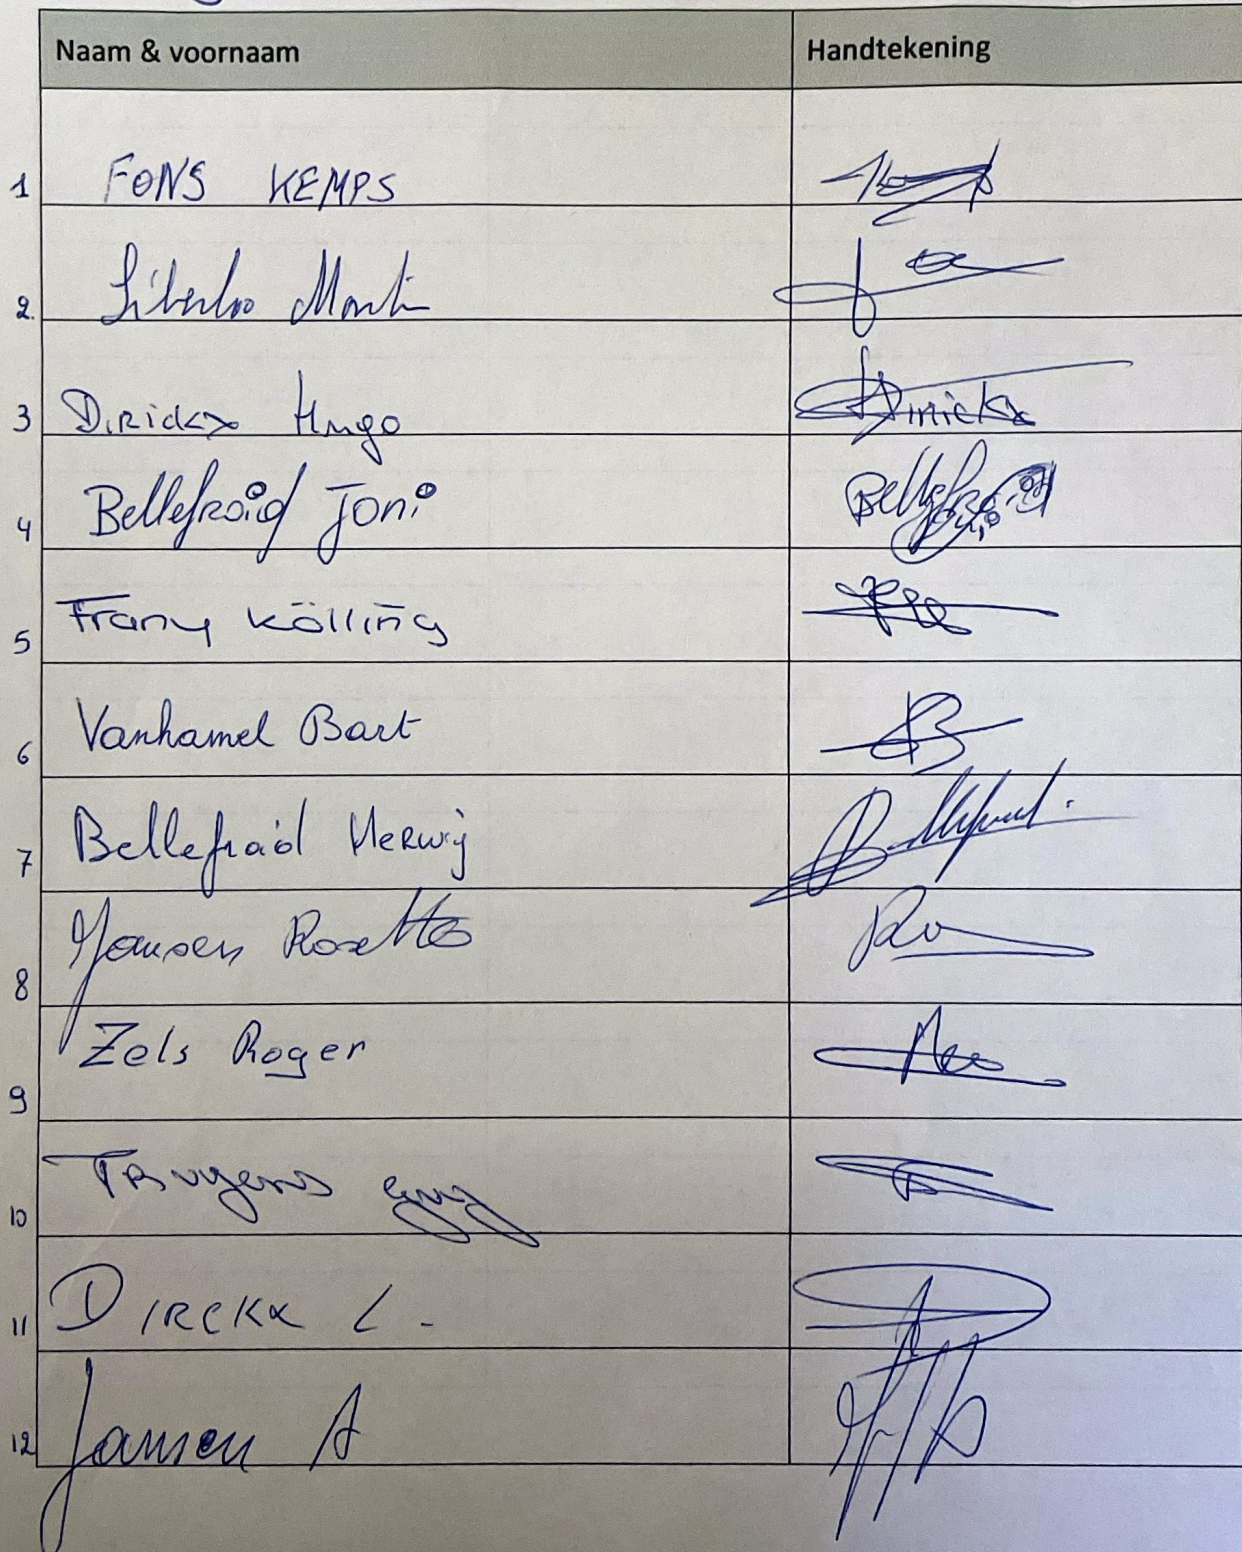 Naam & voornaam Handtekening
1 FONS KEMPS
2. Liberloo Martin
3 Dirickx Hugo Dirickx
4 Bellefroid Joni Bellefroid Joni
5 Frany Kölling
6 Vanhamel Bart
7 Bellefroid Herwig Bellefroid
8 Jansen Rosette Ro
9 Zels Roger
10 Truyens Guy
11 DIRCKX L.
12 Jansen A